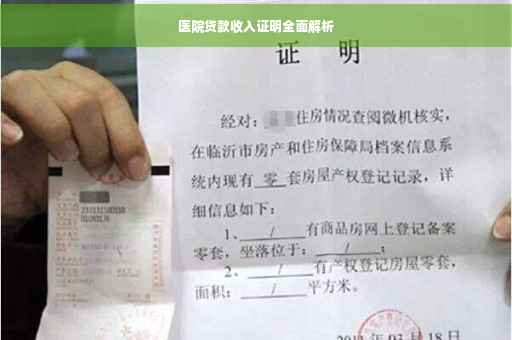 医院贷款收入证明全面解析
证 明
经对：住房情况查阅微机核实，
在临沂市房产和住房保障局档案信息系
统内现有 零 套房屋产权登记记录，详
细信息如下：
1、 / 有商品房网上登记备案
零套，坐落位于： / ；
2、 / 有产权登记房屋零套，
面积： / 平方米。
月 18 日